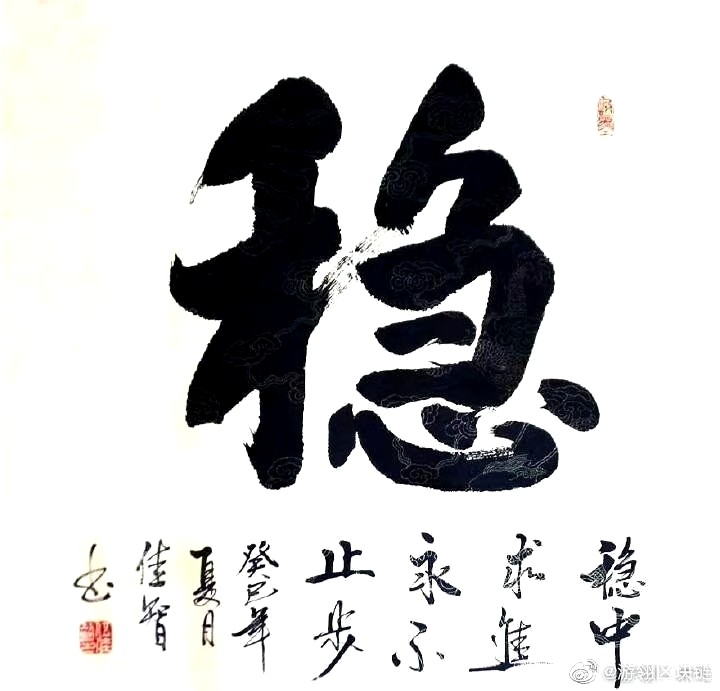 稳
稳中
求進
永不
止步
癸巳年
夏月
佳智
书
@游翊区块链